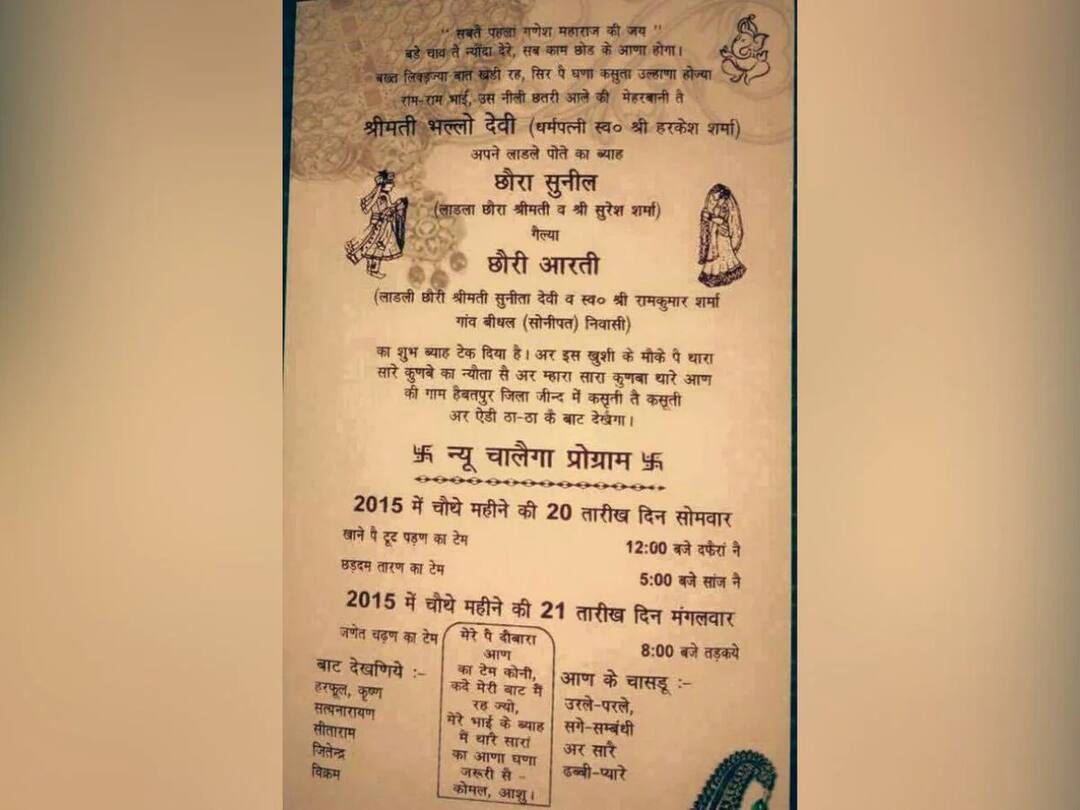 “ सबतै पहला गणेश महाराज की जय ”
बड़े चाव तै न्यौंदा देरे, सब काम छोड के आणा होगा।
बख्त लिकड़ज्या बात खड़ी रह, सिर पै घणा कसुता उल्हाणा होज्या
राम-राम भाई, उस नीली छतरी आले की मेहरबानी तै
श्रीमती भल्लो देवी (धर्मपत्नी स्व० श्री हरकेश शर्मा)
अपने लाडले पोते का ब्याह
छौरा सुनील
(लाडला छौरा श्रीमती व श्री सुरेश शर्मा)
गैल्या
छौरी आरती
(लाडली छौरी श्रीमती सुनीता देवी व स्व० श्री रामकुमार शर्मा
गांव बीधल (सोनीपत) निवासी)
का शुभ ब्याह टेक दिया है। अर इस खुशी के मौके पै थारा
सारे कुणबे का न्यौता सै अर म्हारा सारा कुणबा थारे आण
की गाम हैबतपुर जिला जीन्द में कसूती तै कसूती
अर ऐडी ठा-ठा कैं बाट देखैगा।
卐 न्यू चालैगा प्रोग्राम 卐
2015 में चौथे महीने की 20 तारीख दिन सोमवार
खाने पै टूट पड़ण का टेम 12:00 बजे दफैरां नै
छड़दम तारण का टेम 5:00 बजे सांज नै
2015 में चौथे महीने की 21 तारीख दिन मंगलवार
जणेत चढ़ण का टेम 8:00 बजे तड़कये
बाट देखणिये :-
हरफूल, कृष्ण
सत्यनारायण
सीताराम
जितेन्द्र
विक्रम
मेरे पै दौबारा
आण
का टेम कोनी,
कदे मेरी बाट मैं
रह ज्यो,
मेरे भाई के ब्याह
मैं थारै सारां
का आणा घणा
जरूरी सै -
कोमल, आशु।
आण के चासडू :-
उरले-परले,
सगे-सम्बंधी
अर सारै
ढब्बी-प्यारे